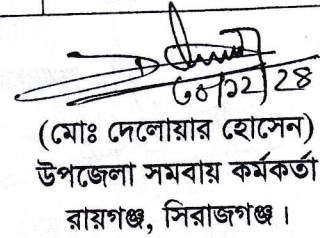 ৩০/১২/২৪
(মোঃ দেলোয়ার হোসেন)
উপজেলা সমবায় কর্মকর্তা
রায়গঞ্জ, সিরাজগঞ্জ।